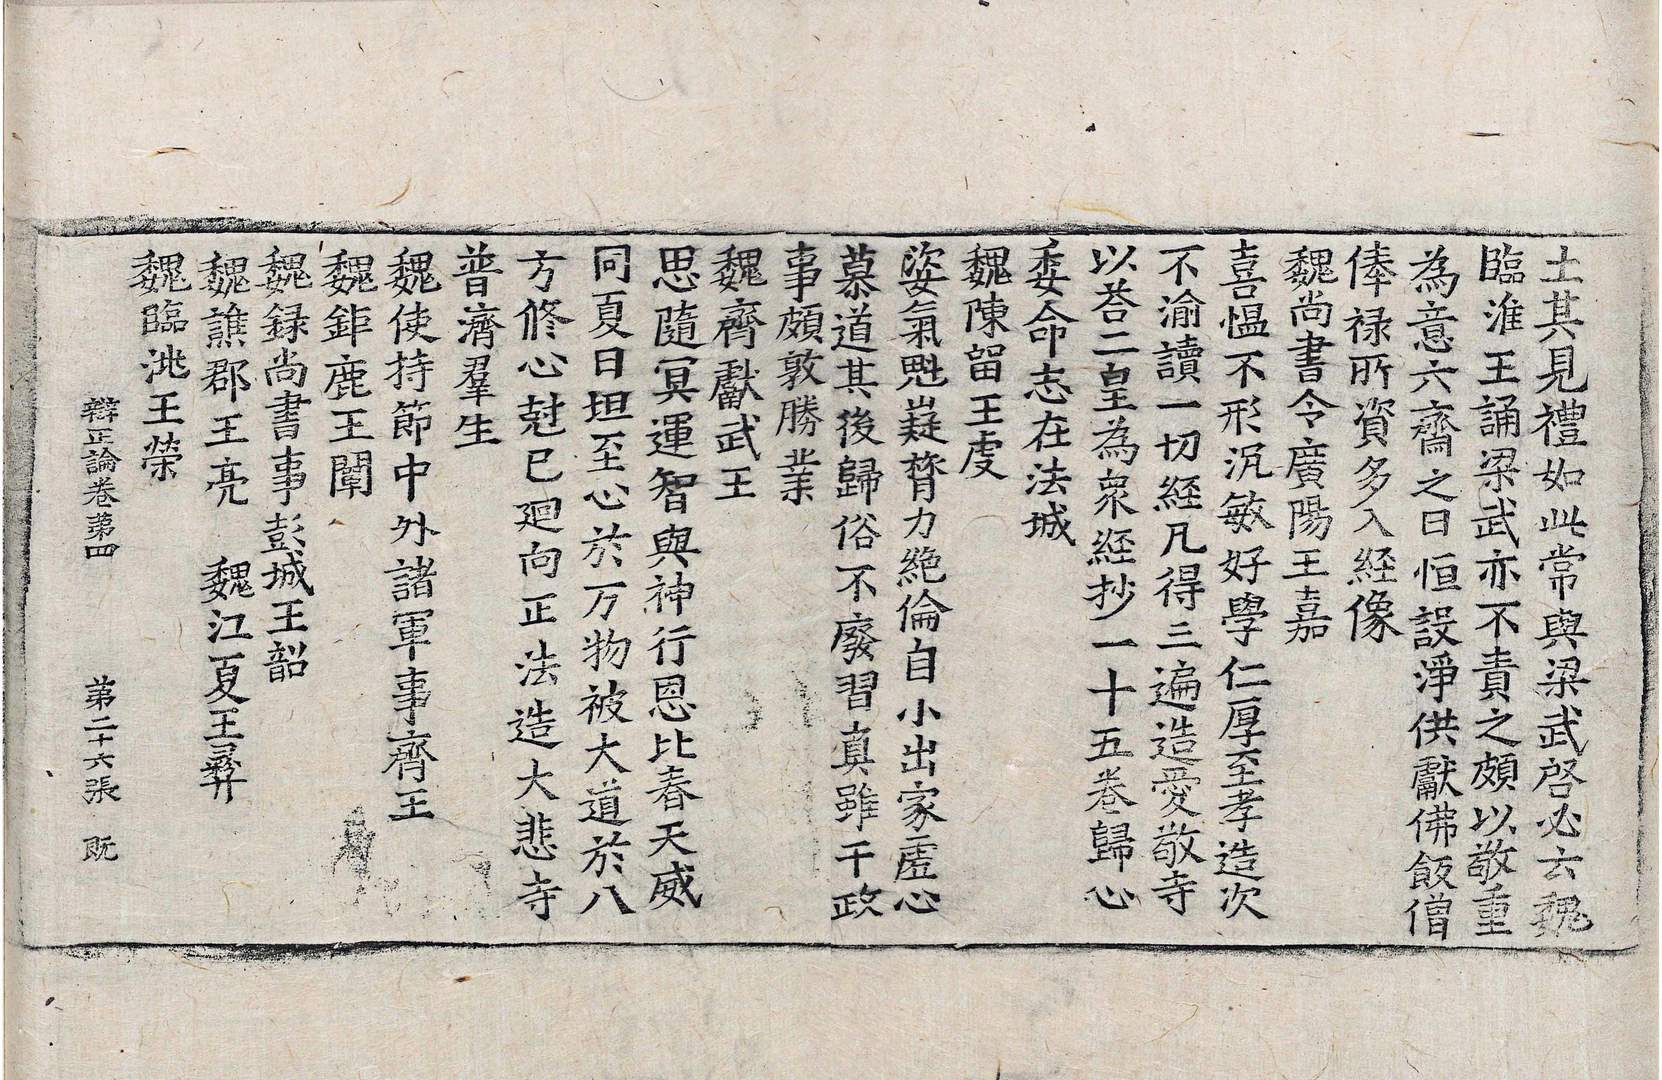 土其見禮如此常與梁武啓必云魏
臨淮王誦梁武亦不責之頗以敬重
為意六齋之日恒設淨供獻佛飯僧
俸禄所資多入経像
魏尚書令廣陽王嘉
喜愠不形沉敏好學仁厚至孝造次
不渝讀一切経凡得三遍造愛敬寺
以荅二皇為衆経抄一十五卷歸心
委命志在法城
魏陳留王虔
姿氣魁嶷膂力絶倫自小出家虛心
慕道其後歸俗不廢習真雖干政
事頗敦勝業
魏齊獻武王
思隨冥運智與神行恩比春天威
同夏日坦至心於万物被大道於八
方修心尅已廻向正法造大悲寺
普濟羣生
魏使持節中外諸軍事齊王
魏鉅鹿王闡
魏録尚書事彭城王韶
魏譙郡王亮　魏江夏王彝
魏臨洮王榮
辯正論卷苐四　苐二十六張　既